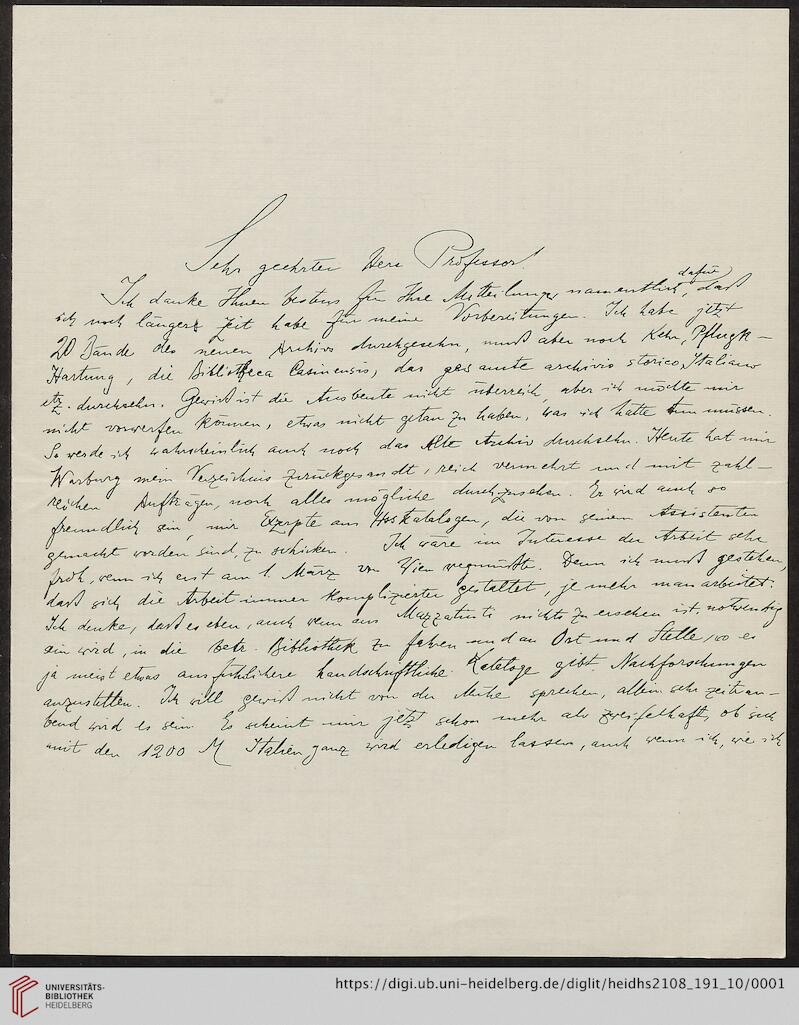 Sehr geehrter Herr Professor!
Ich danke Ihnen bestens für Ihre Mitteilungen namentlich dafür, daß
ich noch längere Zeit habe für meine Vorbereitungen. Ich habe jetzt
20 Bände des neuen Archivs durchgesehn, muß aber noch Kehr, Pflugk-
Hartung, die Bibliotheca Casinensis, das gesamte archivio storico Italiano
etz. durchsehn. Gewiß ist die Ausbeute nicht überreich, aber ich möchte mir
nicht vorwerfen können, etwas nicht getan zu haben, was ich hätte tun müssen.
So werde ich wahrscheinlich auch noch das Alte Archiv durchsehn. Heute hat mir
Warburg mein Verzeichnis zurückgesandt, reich vermehrt und mit zahl-
reichen Aufträgen, noch alles mögliche durchzusehen. Er wird auch so
freundlich sein, mir Exzerpte aus Hsskatalogen, die von seinem Assistenten
gemacht worden sind, zu schicken. Ich wäre im Interesse der Arbeit sehr
froh, wenn ich erst am 1. März von Wien wegmüßte. Denn ich muß gestehen,
daß sich die Arbeit immer komplizierter gestaltet, je mehr man arbeitet.
Ich denke, daß es eben, auch wenn aus Mazzatinti nichts zu ersehen ist, notwendig
sein wird, in die betr. Bibliothek zu fahren und an Ort und Stelle, wo es
ja meist etwas ausführlichere handschriftliche Kataloge gibt, Nachforschungen
anzustellen. Ich will gewiß nicht von der Mühe sprechen, allein sehr zeitrau-
bend wird es sein. Es scheint mir jetzt schon mehr als zweifelhaft, ob sich
mit den 1200 M Italien ganz wird erledigen lassen, auch wenn ich, wie ich
UNIVERSITÄTS-
BIBLIOTHEK
HEIDELBERG
https://digi.ub.uni-heidelberg.de/diglit/heidhs2108_191_10/0001